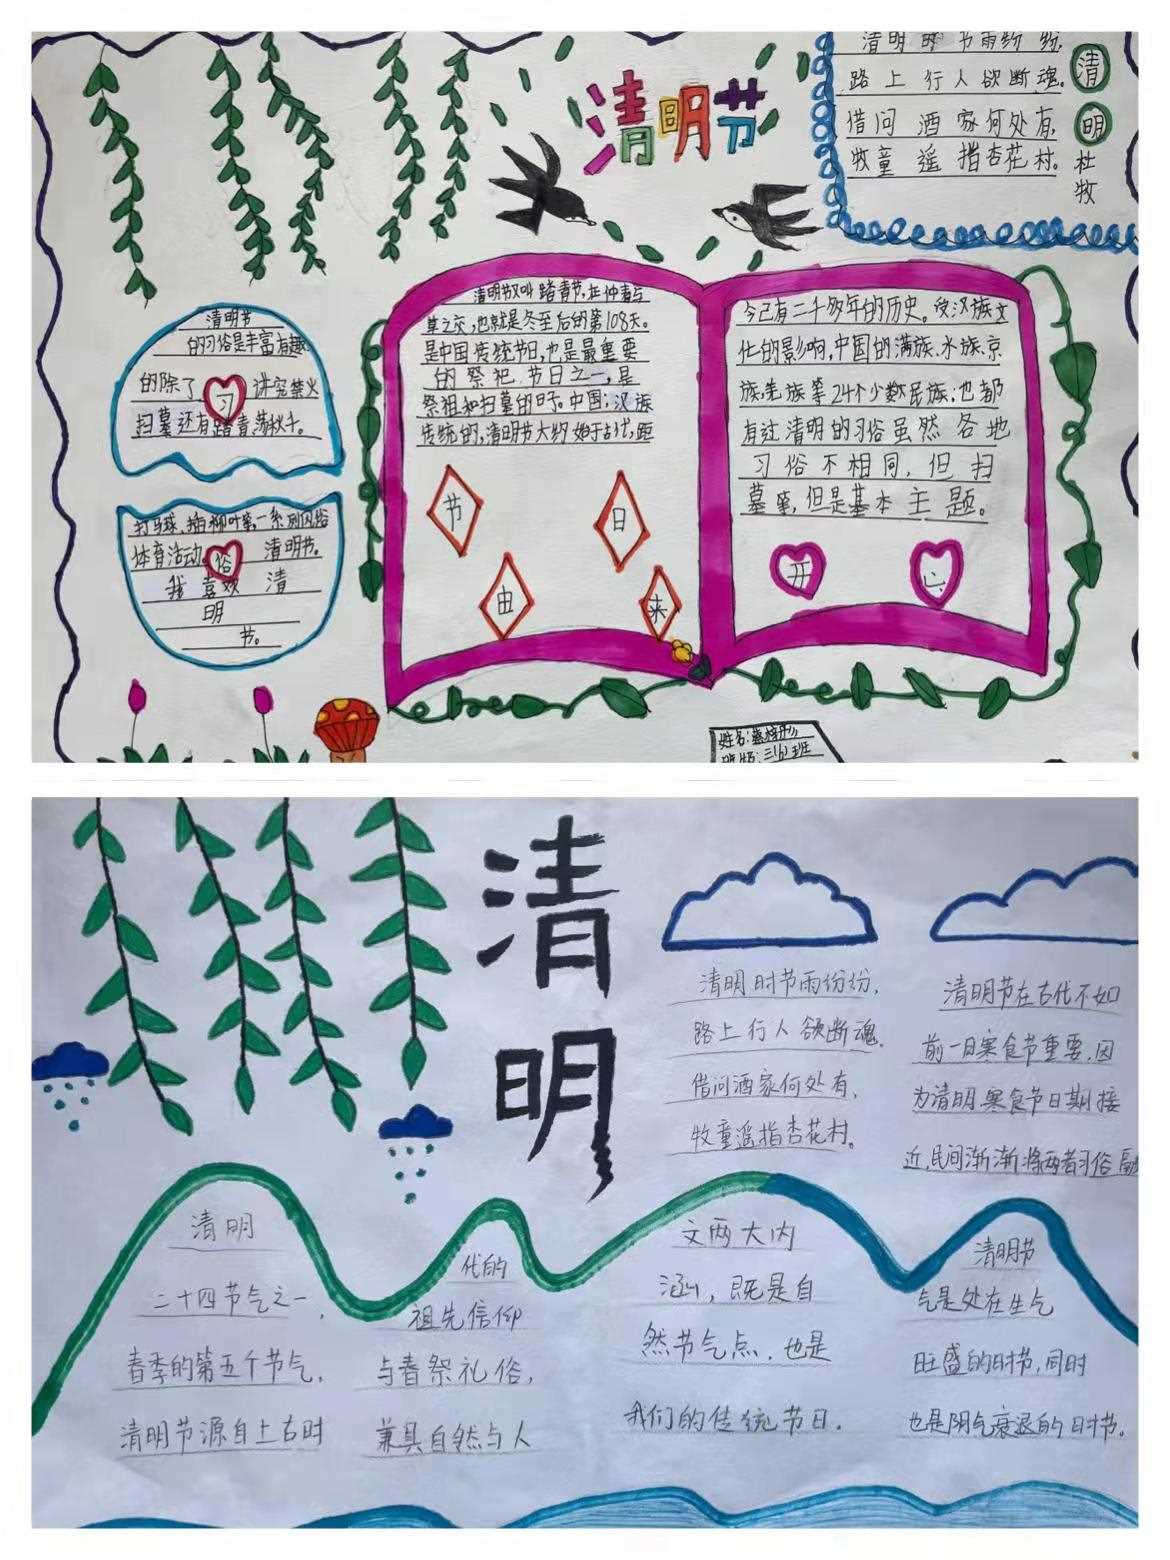 清明节
清明时节雨纷纷,
路上行人欲断魂。
借问酒家何处有,
牧童遥指杏花村。
清
明
杜
牧
清明节
的习俗是丰富有趣
的除了讲究禁火
扫墓还有踏青荡秋千。
习
打马球,插柳叶等,一系列风俗
体育活动,清明节。
俗
我喜欢清
明
节。
清明节又叫踏青节,在仲春与
草之交,也就是冬至后的第108天。
是中国传统节日,也是最重要
的祭祀节日之一,是
祭祖和扫墓的日子。中国,汉族
传统的,清明节大约始于古代,距
节
日
由
来
今已有二千多年的历史。受汉族文
化的影响,中国的满族、水族、京
族,羌族等24个少数民族,也都
有过清明的习俗虽然各地
习俗不相同,但扫
墓等,但是基本主题。
开
心
姓名:
班级:三(6)班
清
明
清明时节雨纷纷,
路上行人欲断魂。
借问酒家何处有,
牧童遥指杏花村。
清明节在古代不如
前一日寒食节重要,因
为清明寒食节日期接
近,民间渐渐将两者习俗融
清明
二十四节气之一,
春季的第五个节气,
清明节源自上古时
代的
祖先信仰
与春祭礼俗,
兼具自然与人
文两大内
涵,既是自
然节气点,也是
我们的传统节日.
清明节
气是处在生气
旺盛的时节,同时
也是阴气衰退的时节。